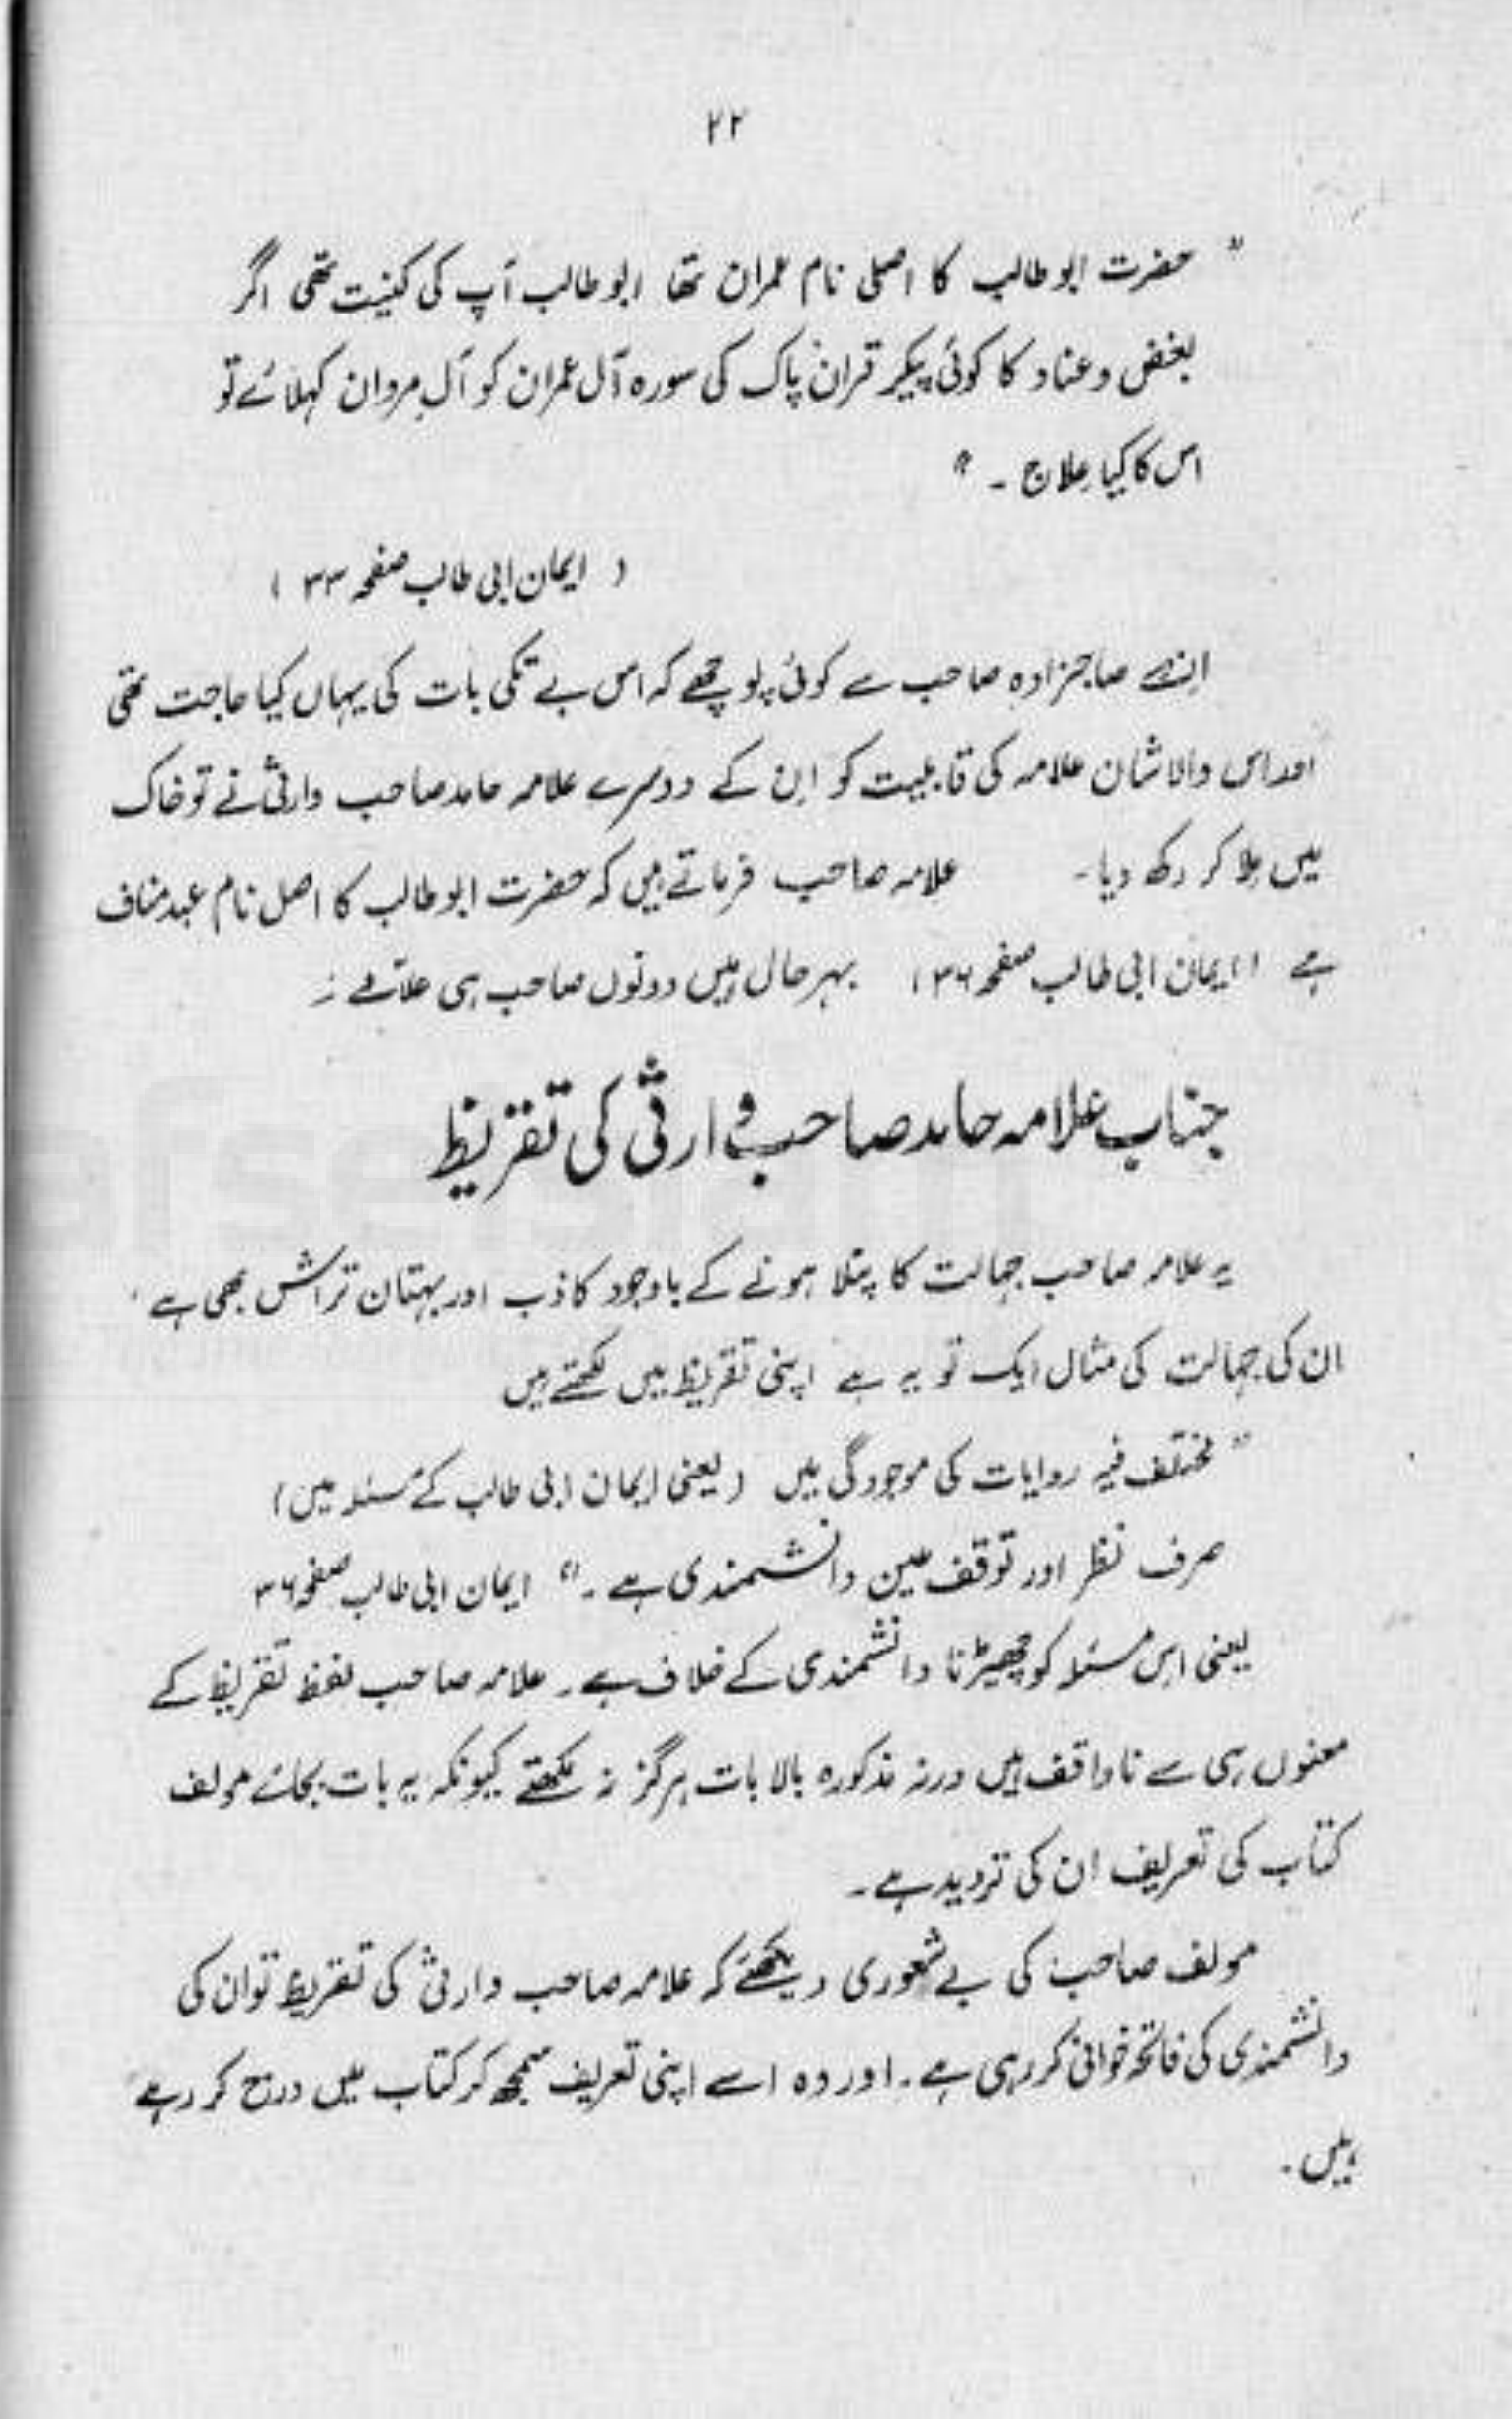 ۲۲
" حضرت ابو طالب کا اصلی نام عمران تھا ابو طالب آپ کی کنیت تھی اگر
بغض و عناد کا کوئی پیکر قرآن پاک کی سورہ آل عمران کو آلِ مروان کہلائے تو
اس کا کیا علاج ۔ "
( ایمان ابی طالب صفحہ ۳۳ )
ان صاحبزادہ صاحب سے کوئی پوچھے کہ اس بے تکی بات کی یہاں کیا حاجت تھی
اور اس والا شان علامہ کی قابلیت کو ان کے دوسرے علامہ حامد صاحب وارثی نے تو خاک
میں ملا کر رکھ دیا۔ علامہ صاحب فرماتے ہیں کہ حضرت ابو طالب کا اصل نام عبد مناف
ہے (ایمان ابی طالب صفحہ ۳۶) بہر حال ہیں دونوں صاحب ہی علامے :
جناب علامہ حامد صاحب وارثی کی تقریظ
یہ علامہ صاحب جہالت کا پتلا ہونے کے باوجود کاذب اور بہتان تراش بھی ہے ،
ان کی جہالت کی مثال ایک تو یہ ہے اپنی تقریظ میں لکھتے ہیں
" مختلف فیہ روایات کی موجودگی میں (یعنی ایمان ابی طالب کے مسئلہ میں)
صرف نظر اور توقف عین دانشمندی ہے ۔" ایمان ابی طالب صفحہ ۳۶
یعنی اس مسئلہ کو چھیڑنا دانشمندی کے خلاف ہے ۔ علامہ صاحب لفظ تقریظ کے
معنوں ہی سے ناواقف ہیں ورنہ مذکورہ بالا بات ہرگز نہ لکھتے کیونکہ یہ بات بجائے مولف
کتاب کی تعریف ان کی تردید ہے ۔
مولف صاحب کی بے شعوری دیکھئے کہ علامہ صاحب وارثی کی تقریظ تو ان کی
دانشمندی کی فاتحہ خوانی کر رہی ہے ۔ اور وہ اسے اپنی تعریف سمجھ کر کتاب میں درج کر رہے
ہیں ۔